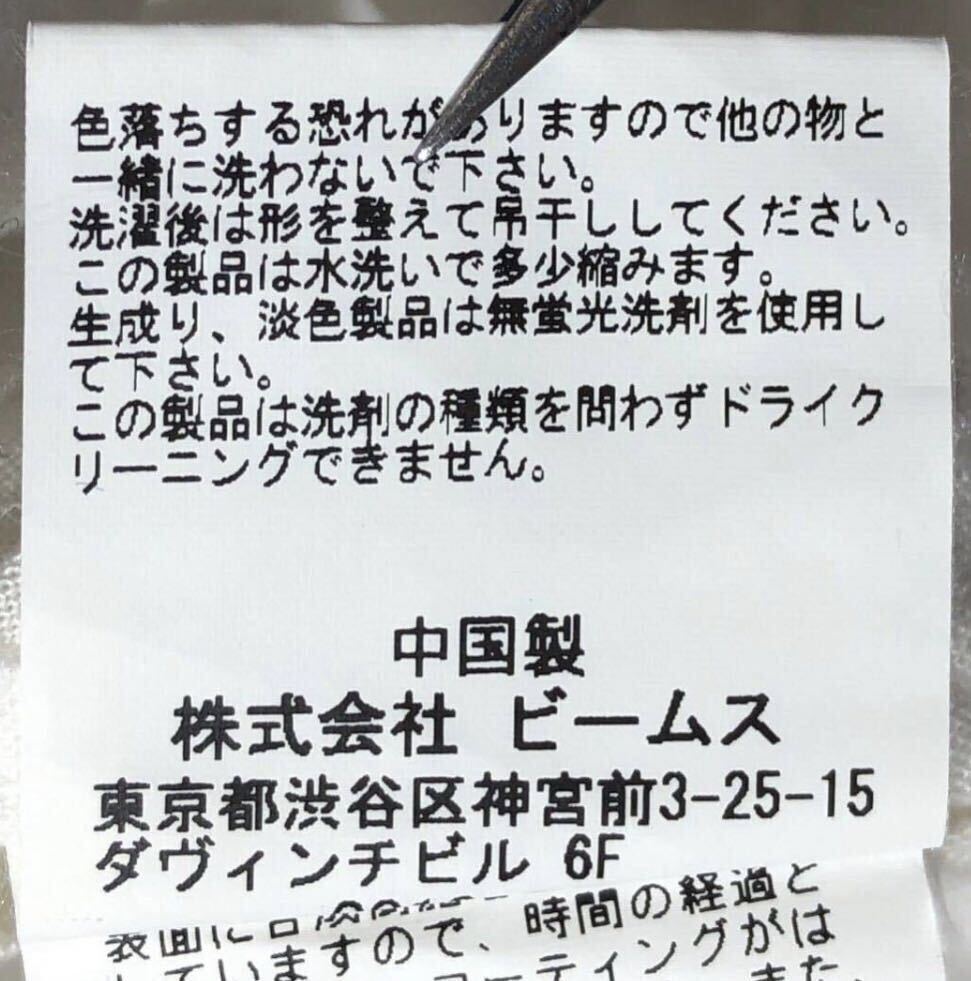 色落ちする恐れがありますので他の物と
一緒に洗わないで下さい。
洗濯後は形を整えて吊干ししてください。
この製品は水洗いで多少縮みます。
生成り、淡色製品は無蛍光洗剤を使用し
て下さい。
この製品は洗剤の種類を問わずドライク
リーニングできません。
中国製
株式会社 ビームス
東京都渋谷区神宮前3-25-15
ダヴィンチビル 6F
表面に
時間の経過と
していますので、
コーティングがは
また、